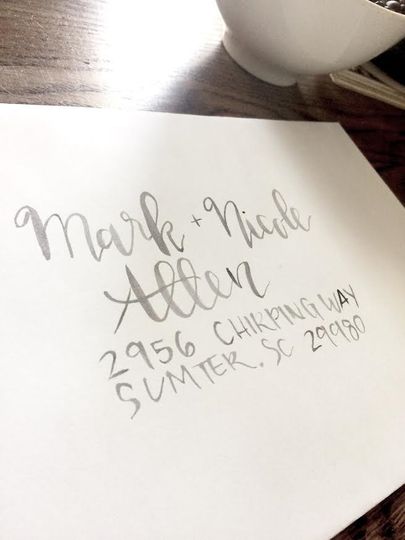 Mark + Nicole
Allen
2956 CHIRPING WAY
SUMTER, SC 299980